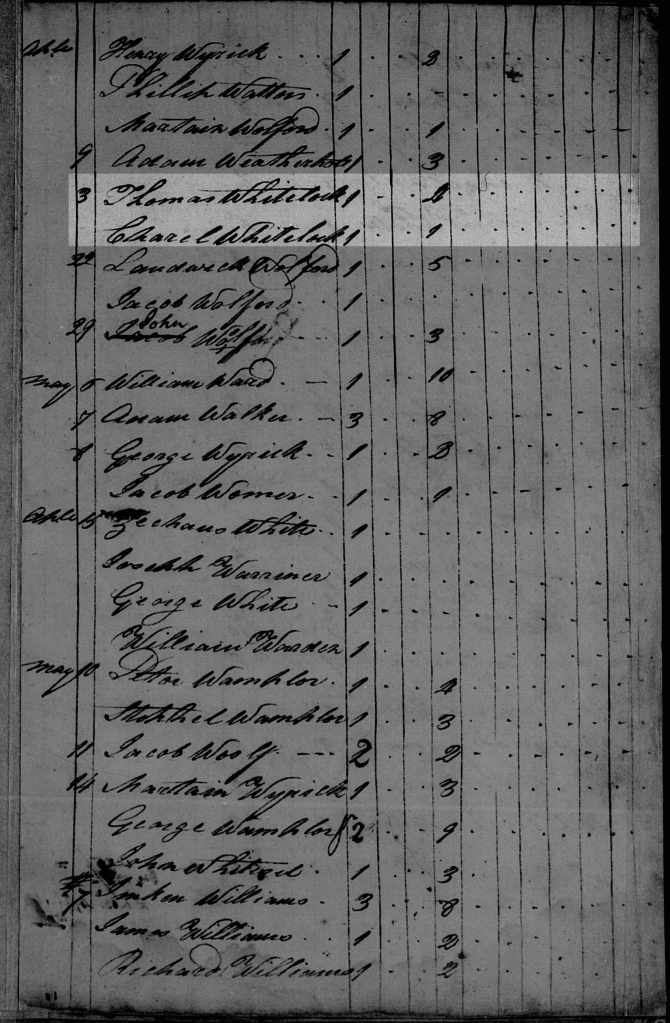 Henry Wyrick 1 2
Phillip Watters 1
Martain Wolford 1 1
9 Adam Weatherholt 1 3
3 Thomas Whitelock 1 2
Charel Whitelock 1 1
22 Laudwick Wolford 1 5
Jacob Wolford 1
29 Jacob John Wolford 1 3
May 6 William Ward 1 10
7 Anam Walker 3 8
8 George Wyrick 1 2
Jacob Womer 1 1
15 Zechaus White 1
Joseph Warriner 1
George White 1
William Warden 1
May 10 Peter Wamplor 1 2
Wamplor 1 3
11 Jacob Woolf 2 2
14 Martain Wyrick 1 3
George Wamplor 2 9
John Whitzel 1 3
7 Williams 3 8
James Williams 1 2
Richard Williams 1 2